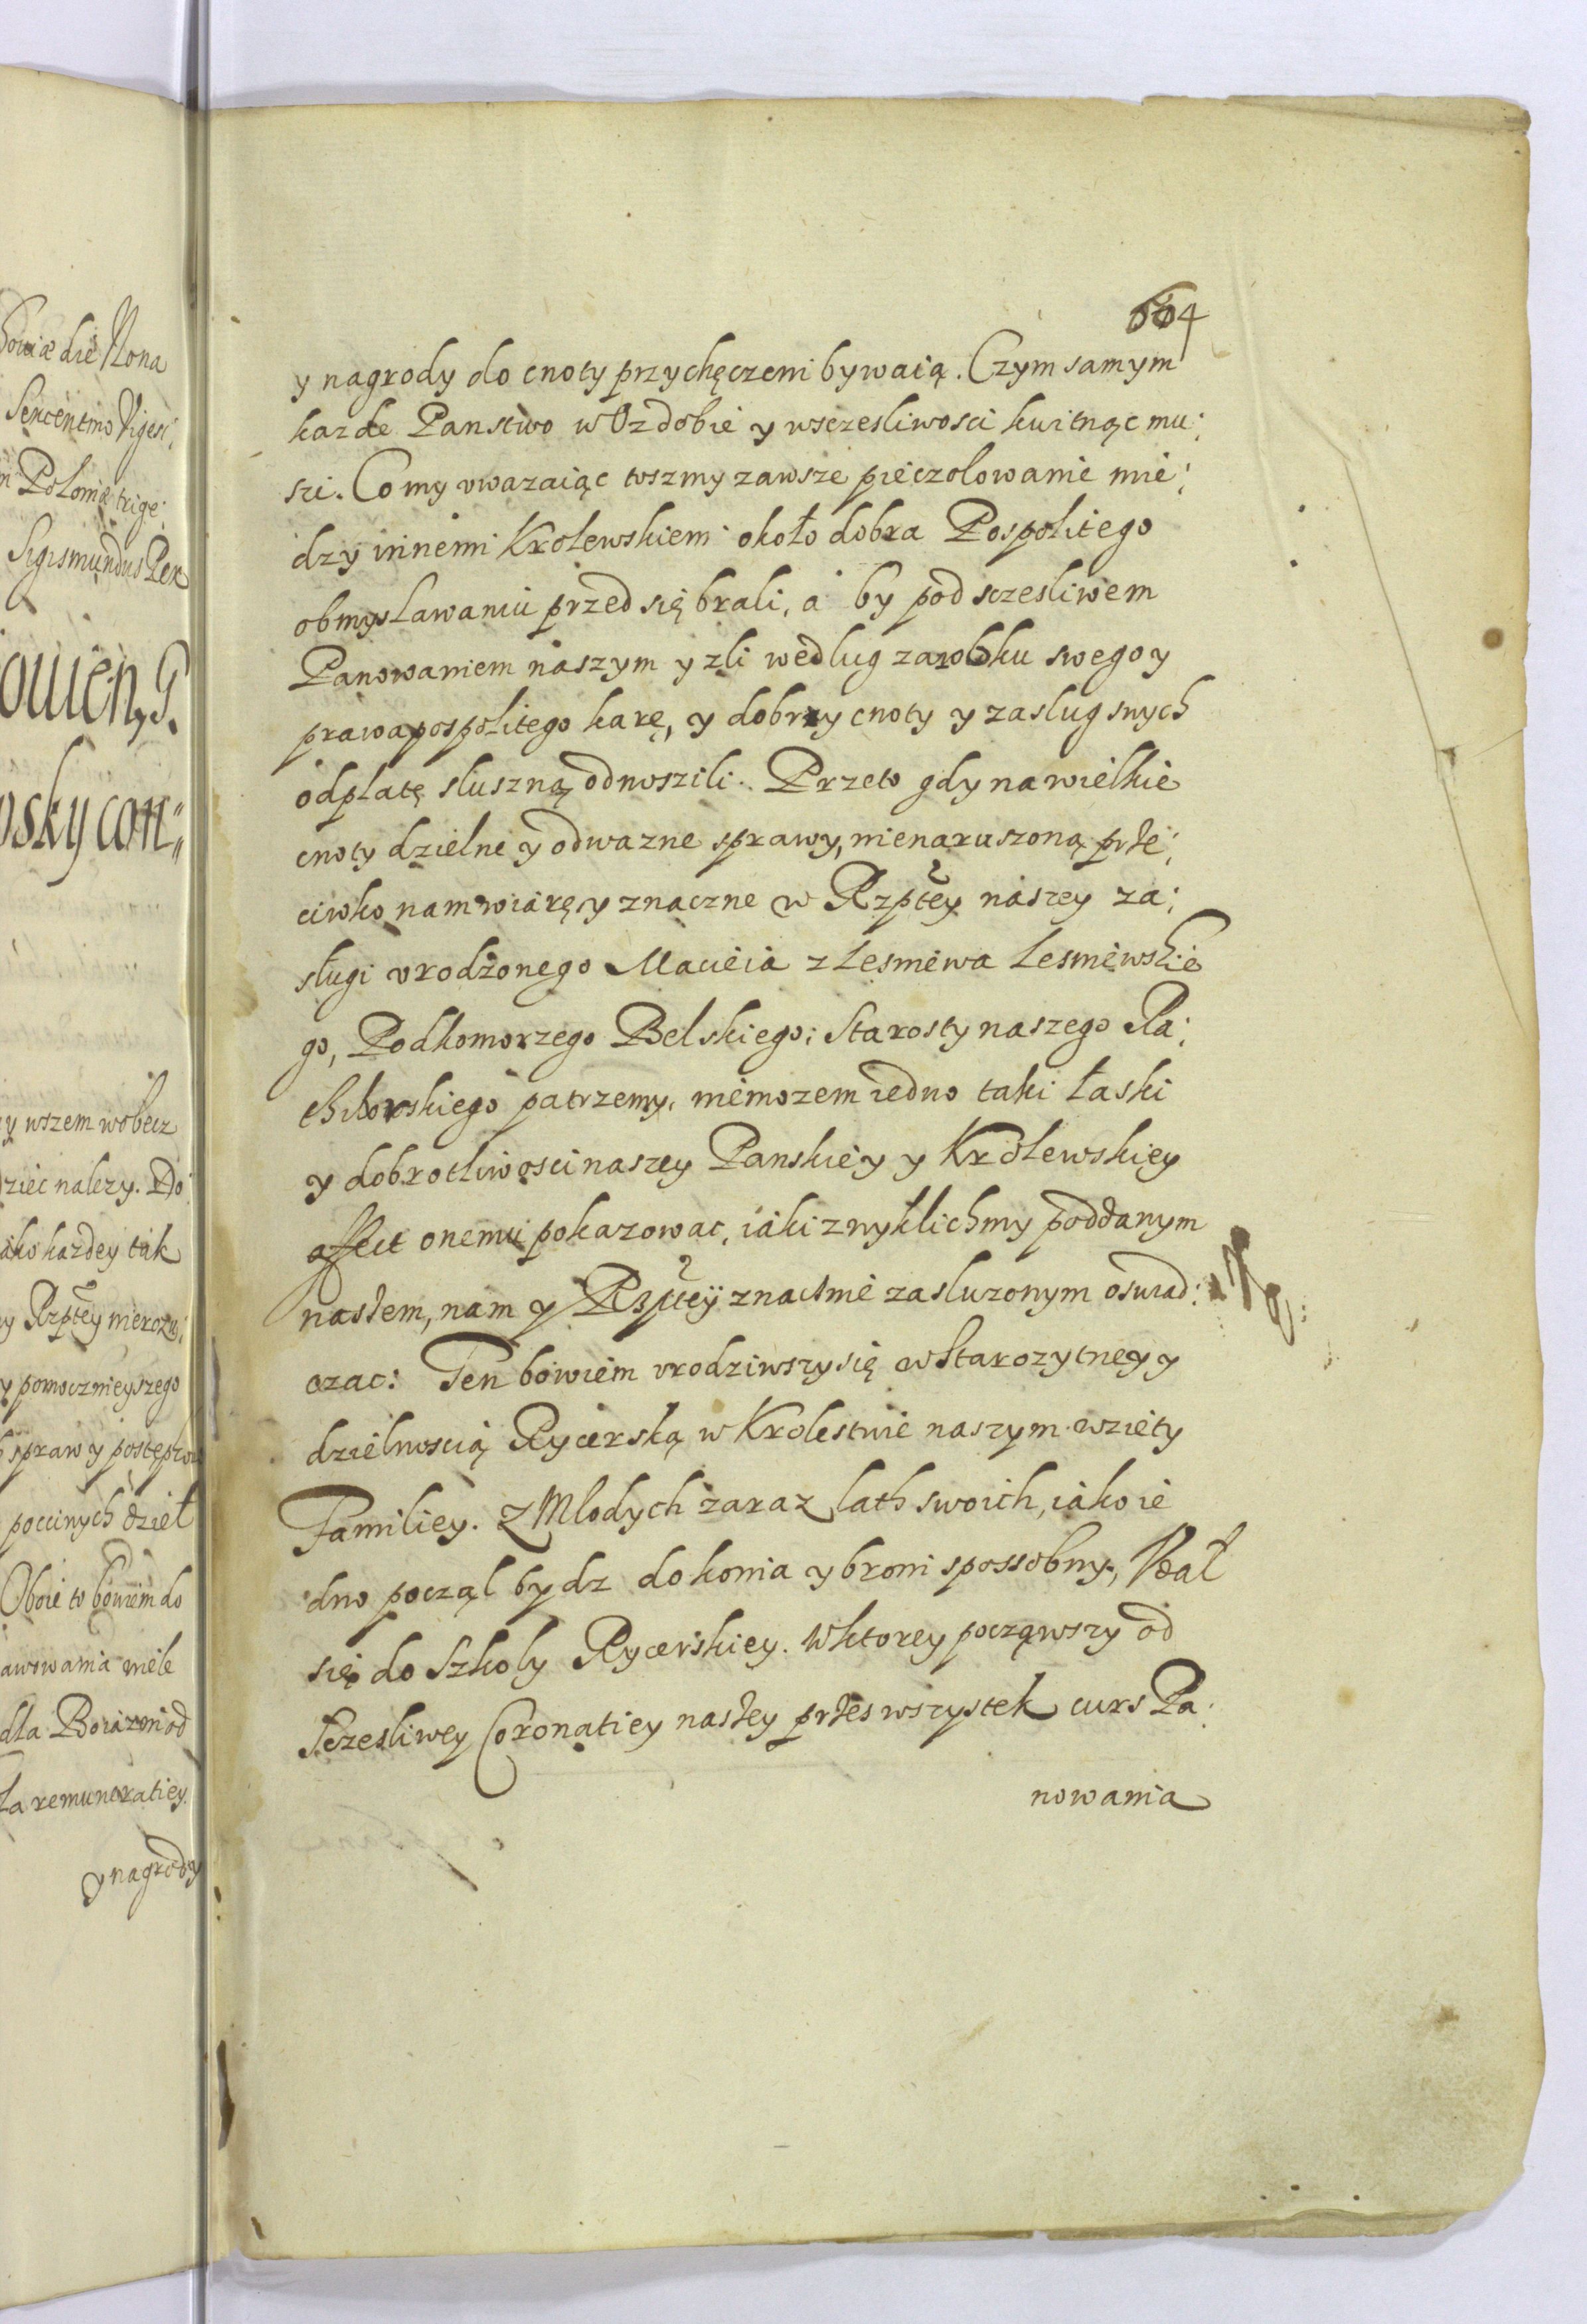 owiæ die Nona
Sexcentmo Vigesi:
m Poloniæ trige:
Sigismundus Rex
owien, G.
osky con:
y wszem wobecz
dziec nalezy. Do:
iako kazdey tak
y Rzptey nierozu:
y pomocznieyszego
spraw y postępkow
poccinych dzieł
Oboie to bowiem do
awowania wiele
dla Boiazni od
la remuneratiey.
y nagrody
604
y nagrody do cnoty przychęczeni bywaią. Czym samym
kazde Panstwo w Ozdobie y wsczesliwosci kwitnąc mu:
szi. Co my uwazaiąc toszmy zawsze pieczolowanie mie:
dzy innemi Krolewskiem około dobra Pospolitego
obmyslawaniu przed się brali, a by pod sczesliwem
Panowaniem naszym y zli wedlug zarobku swego y
prawa pospolitego karę, y dobrzy cnoty y zaslug swych
odplatę sluszną odnoszili. Przeto gdy na wielkie
cnoty dzielne y odwazne sprawy, nienaruszoną prze:
ciwko nam wiarę y znaczne w Rzptey naszey za:
slugi urodzonego Macieia z Lesniewa Lesniewskie
go, Podkomorzego Belskiego; Starosty naszego Ra:
thiborskiego patrzemy, niemozem iedno taki łaski
y dobrotliwosci naszey Panskiey y Krolewskiey
affect onemu pokazowac, iaki zwyklichmy poddanym
naszem, nam y Rzptey znacznie zasluzonym oswiad:
czac: Ten bowiem urodziwszy się w Starozytney y
dzielnoscią Rycerską w Krolestwie naszym wziety
Familiey. Z Mlodych zaraz lath swoich, iako ie
dno począl bydz do konia y broni spossobny, Udał
się do Szkoly Rycerskiey. W ktorey począwszy od
Sczesliwey Coronatiey naszey przes wszystek curs Pa:
nowania